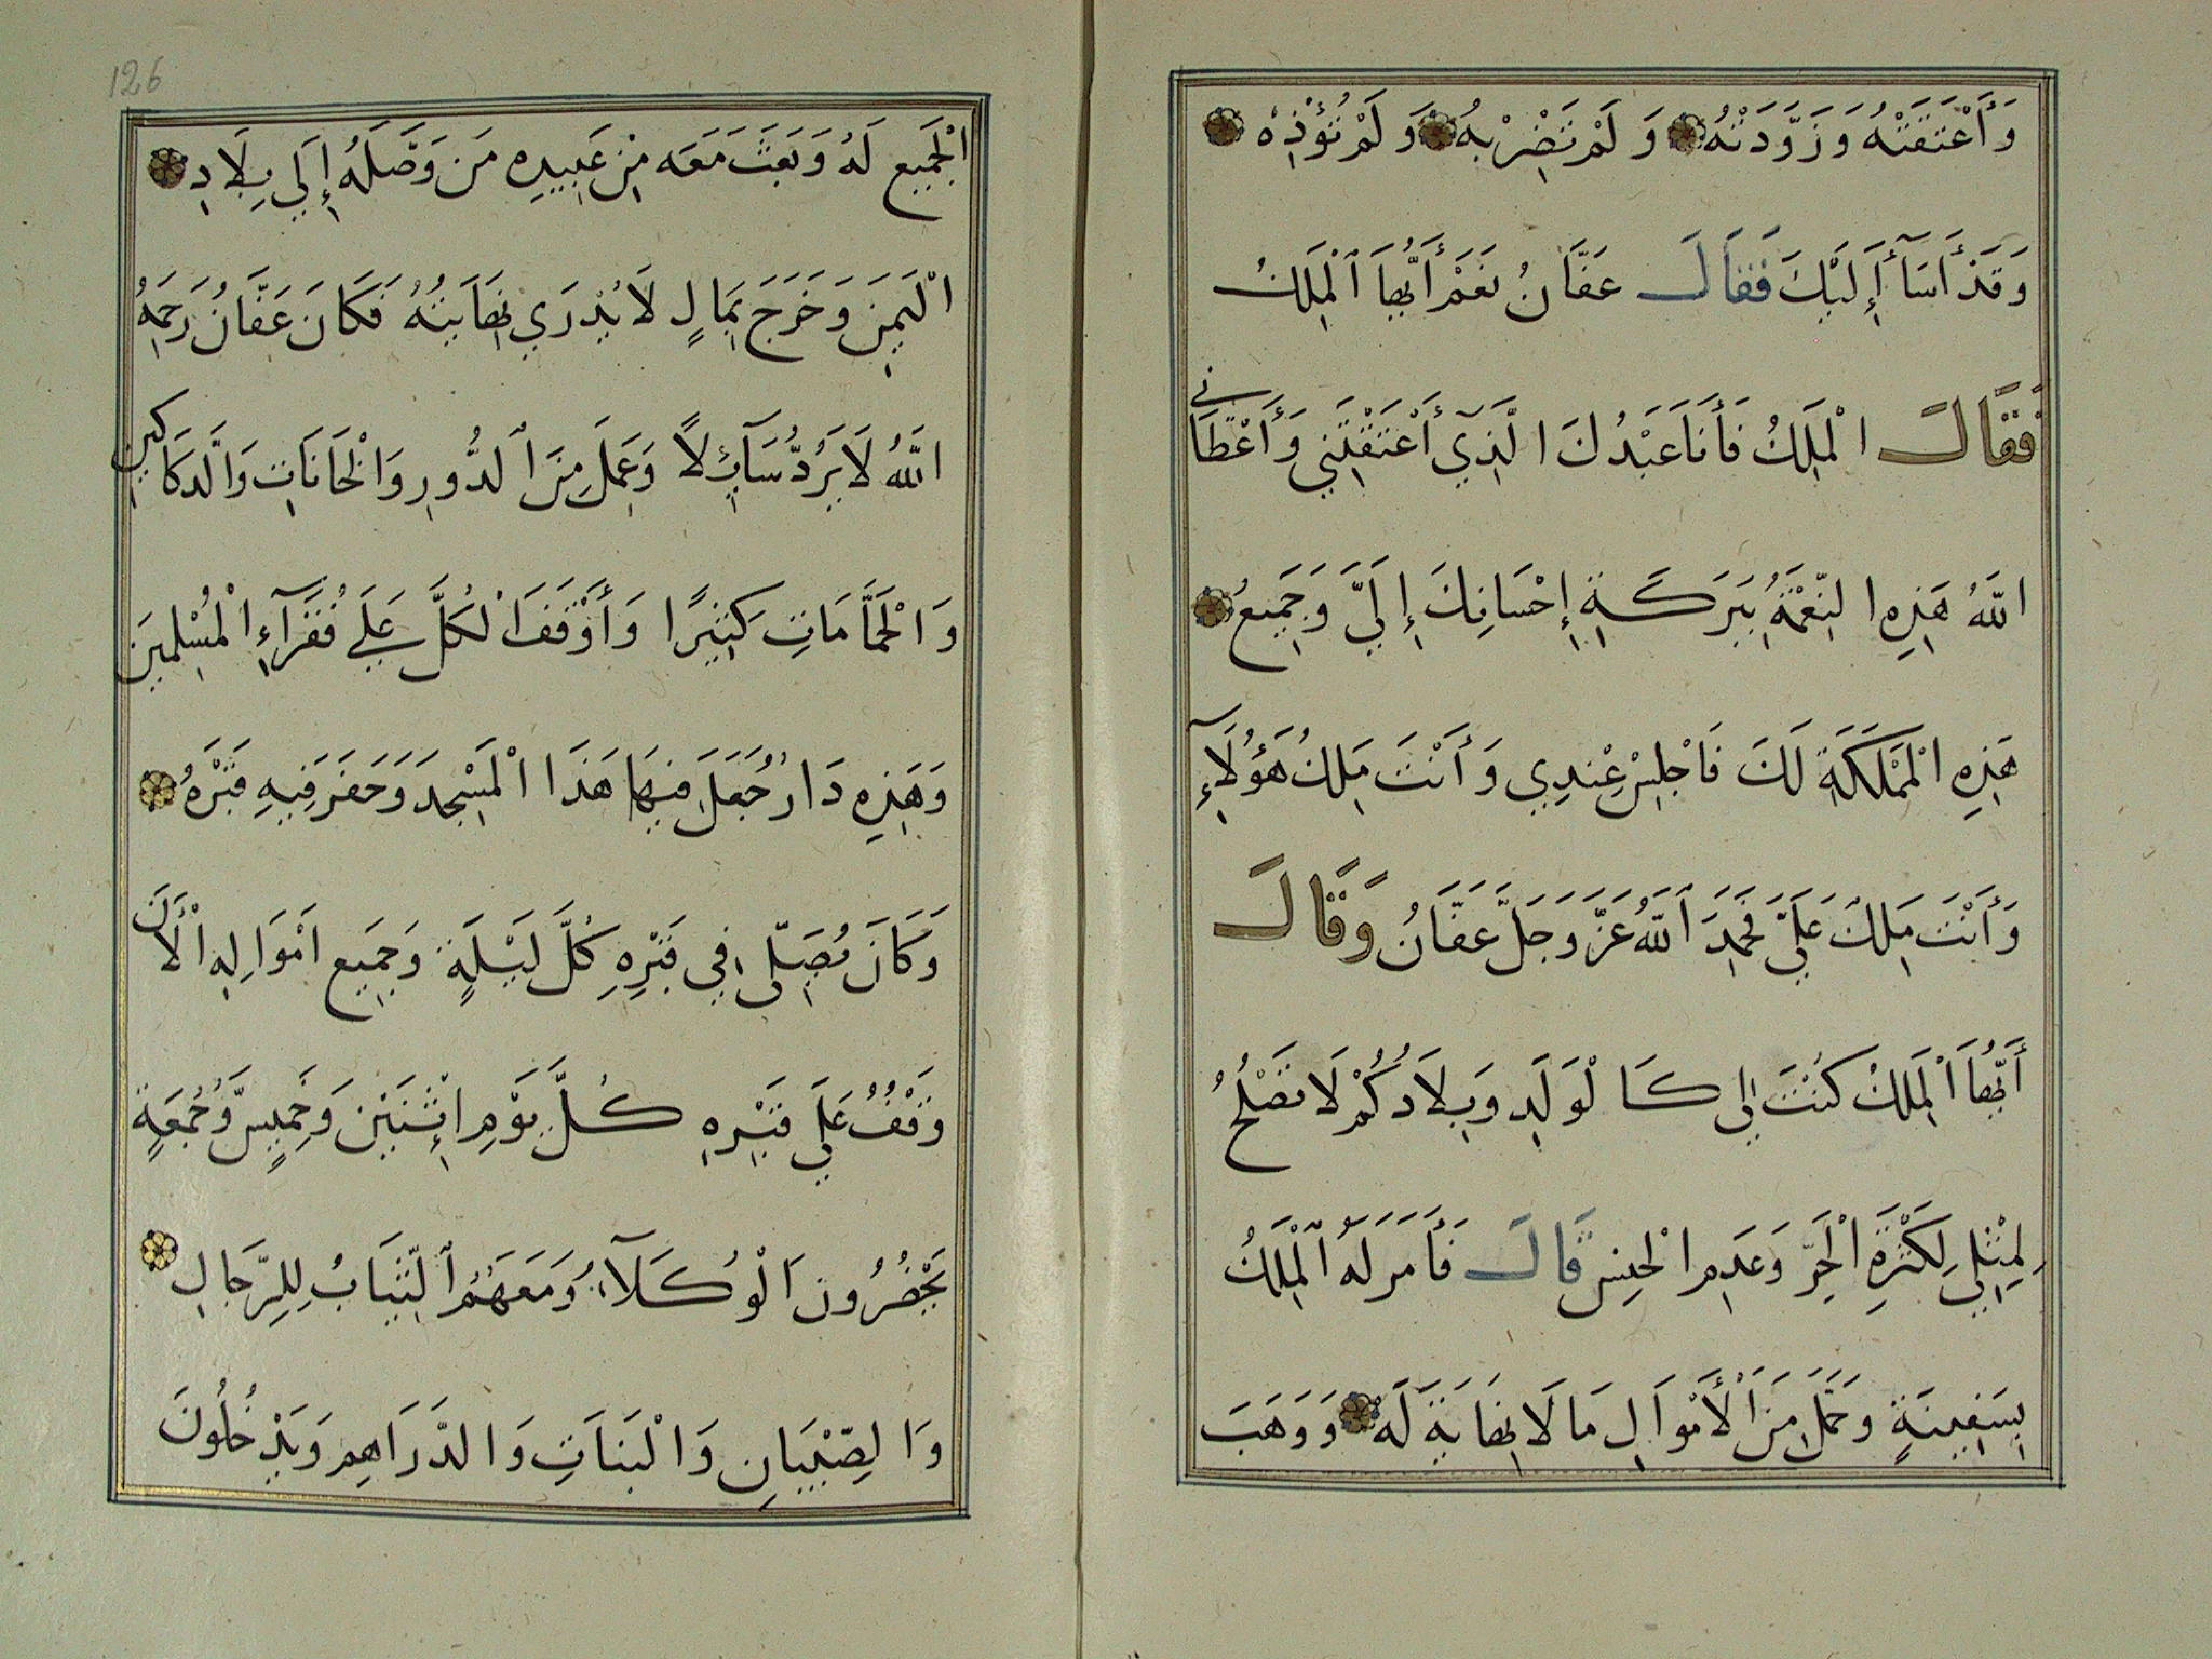 وَأَعْتَقْتَهُ وَزَوَّدْتَهُ وَلَمْ تَضْرِبْهُ وَلَمْ تُؤْذِهْ
وَقَدْ أَسَآ أَلَيْكَ فَقَالَ عَفَّانُ نَعَمْ أَيُّهَا الْمَلِكُ
فَقَالَ الْمَلِكُ فَأَنَا عَبْدُكَ الَّذِي أَعْتَقْتَنِي وَأَعْطَانِي
اللَّهُ هَذِهِ النِّعْمَةُ بِبَرَكَةِ إِحْسَانِكَ إِلَيَّ وَجَمِيعُ
هَذِهِ الْمَمْلَكَةِ لَكَ فَاجْلِسْ عِنْدِي وَأَنْتَ مَلِكُ هَؤُلَآءِ
وَأَنْتَ مَلِكٌ عَلَيَّ فَحَمِدَ اللَّهُ عَزَّ وَجَلَّ عَفَّانُ وَقَالَ
أَيُّهَا الْمَلِكُ كُنْتَ لِى كَالْوَلَدِ وَبِلَادُكُمْ لَا تَصْلُحُ
لِمِثْلِي لِكَثْرَةِ الْحَرِّ وَعَدِمِ الْحِنِسِ قَالَ فَأَمَرَ لَهُ الْمَلِكُ
بِسَفِينَةٍ وَحَمَلَ مِنَ الْأَمْوَالِ مَا لَا نِهَايَةَ لَهُ وَوَهَبَ
126
الْجَمِيعِ لَهُ وَبَعَثَ مَعَه مِنْ عَبِيدِهِ مَنْ وَصَّلَهُ إِلَي بِلَادِ
الْيَمِنَ وَخَرَجَ بِمَالٍ لَا يُدْرَي نِهَايَتُهُ فَكَانَ عَفَّانُ رَحِمَهُ
اللَّهُ لَا يَرُدُّ سَآئِلاً وَعَمِلَ مِنَ الدُّورِ وَالْخَانَاتِ وَالدَّكَاكِينِ
وَالْحَمَّامَاتِ كَثِيرًا وَأَوْقَفَ الْكُلَّ عَلَي فُقَرَآءِ الْمُسْلِمِينَ
وَهَذِهِ دَارٌ جُعِلَ فِيهَا هَذَا الْمَسْجِدَ وَحَفَرَ فِيهِ قَبْرَهُ
وَكَانَ يُصَلِّى فِي قَبْرِهِ كُلَّ لَيْلَةٍ وَجَمِيعِ اَمْوَالِهِ الْأَلآنَ
وَقْفُ عَلَي قَبْرِهِ كُلَّ يَوْمِ اثْنَيْنِ وَخَمِيسٍ وَّجُمَعَةٍ
يَحْضُرُونَ الْوُكَلَآءُ وَمَعَهُمُ الثِّيَابُ لِلرِّجَالِ
وَالصِّبْيَانِ وَالْبَنَاتِ وَالدَّرَاهِمِ وَيَدْخُلُونَ